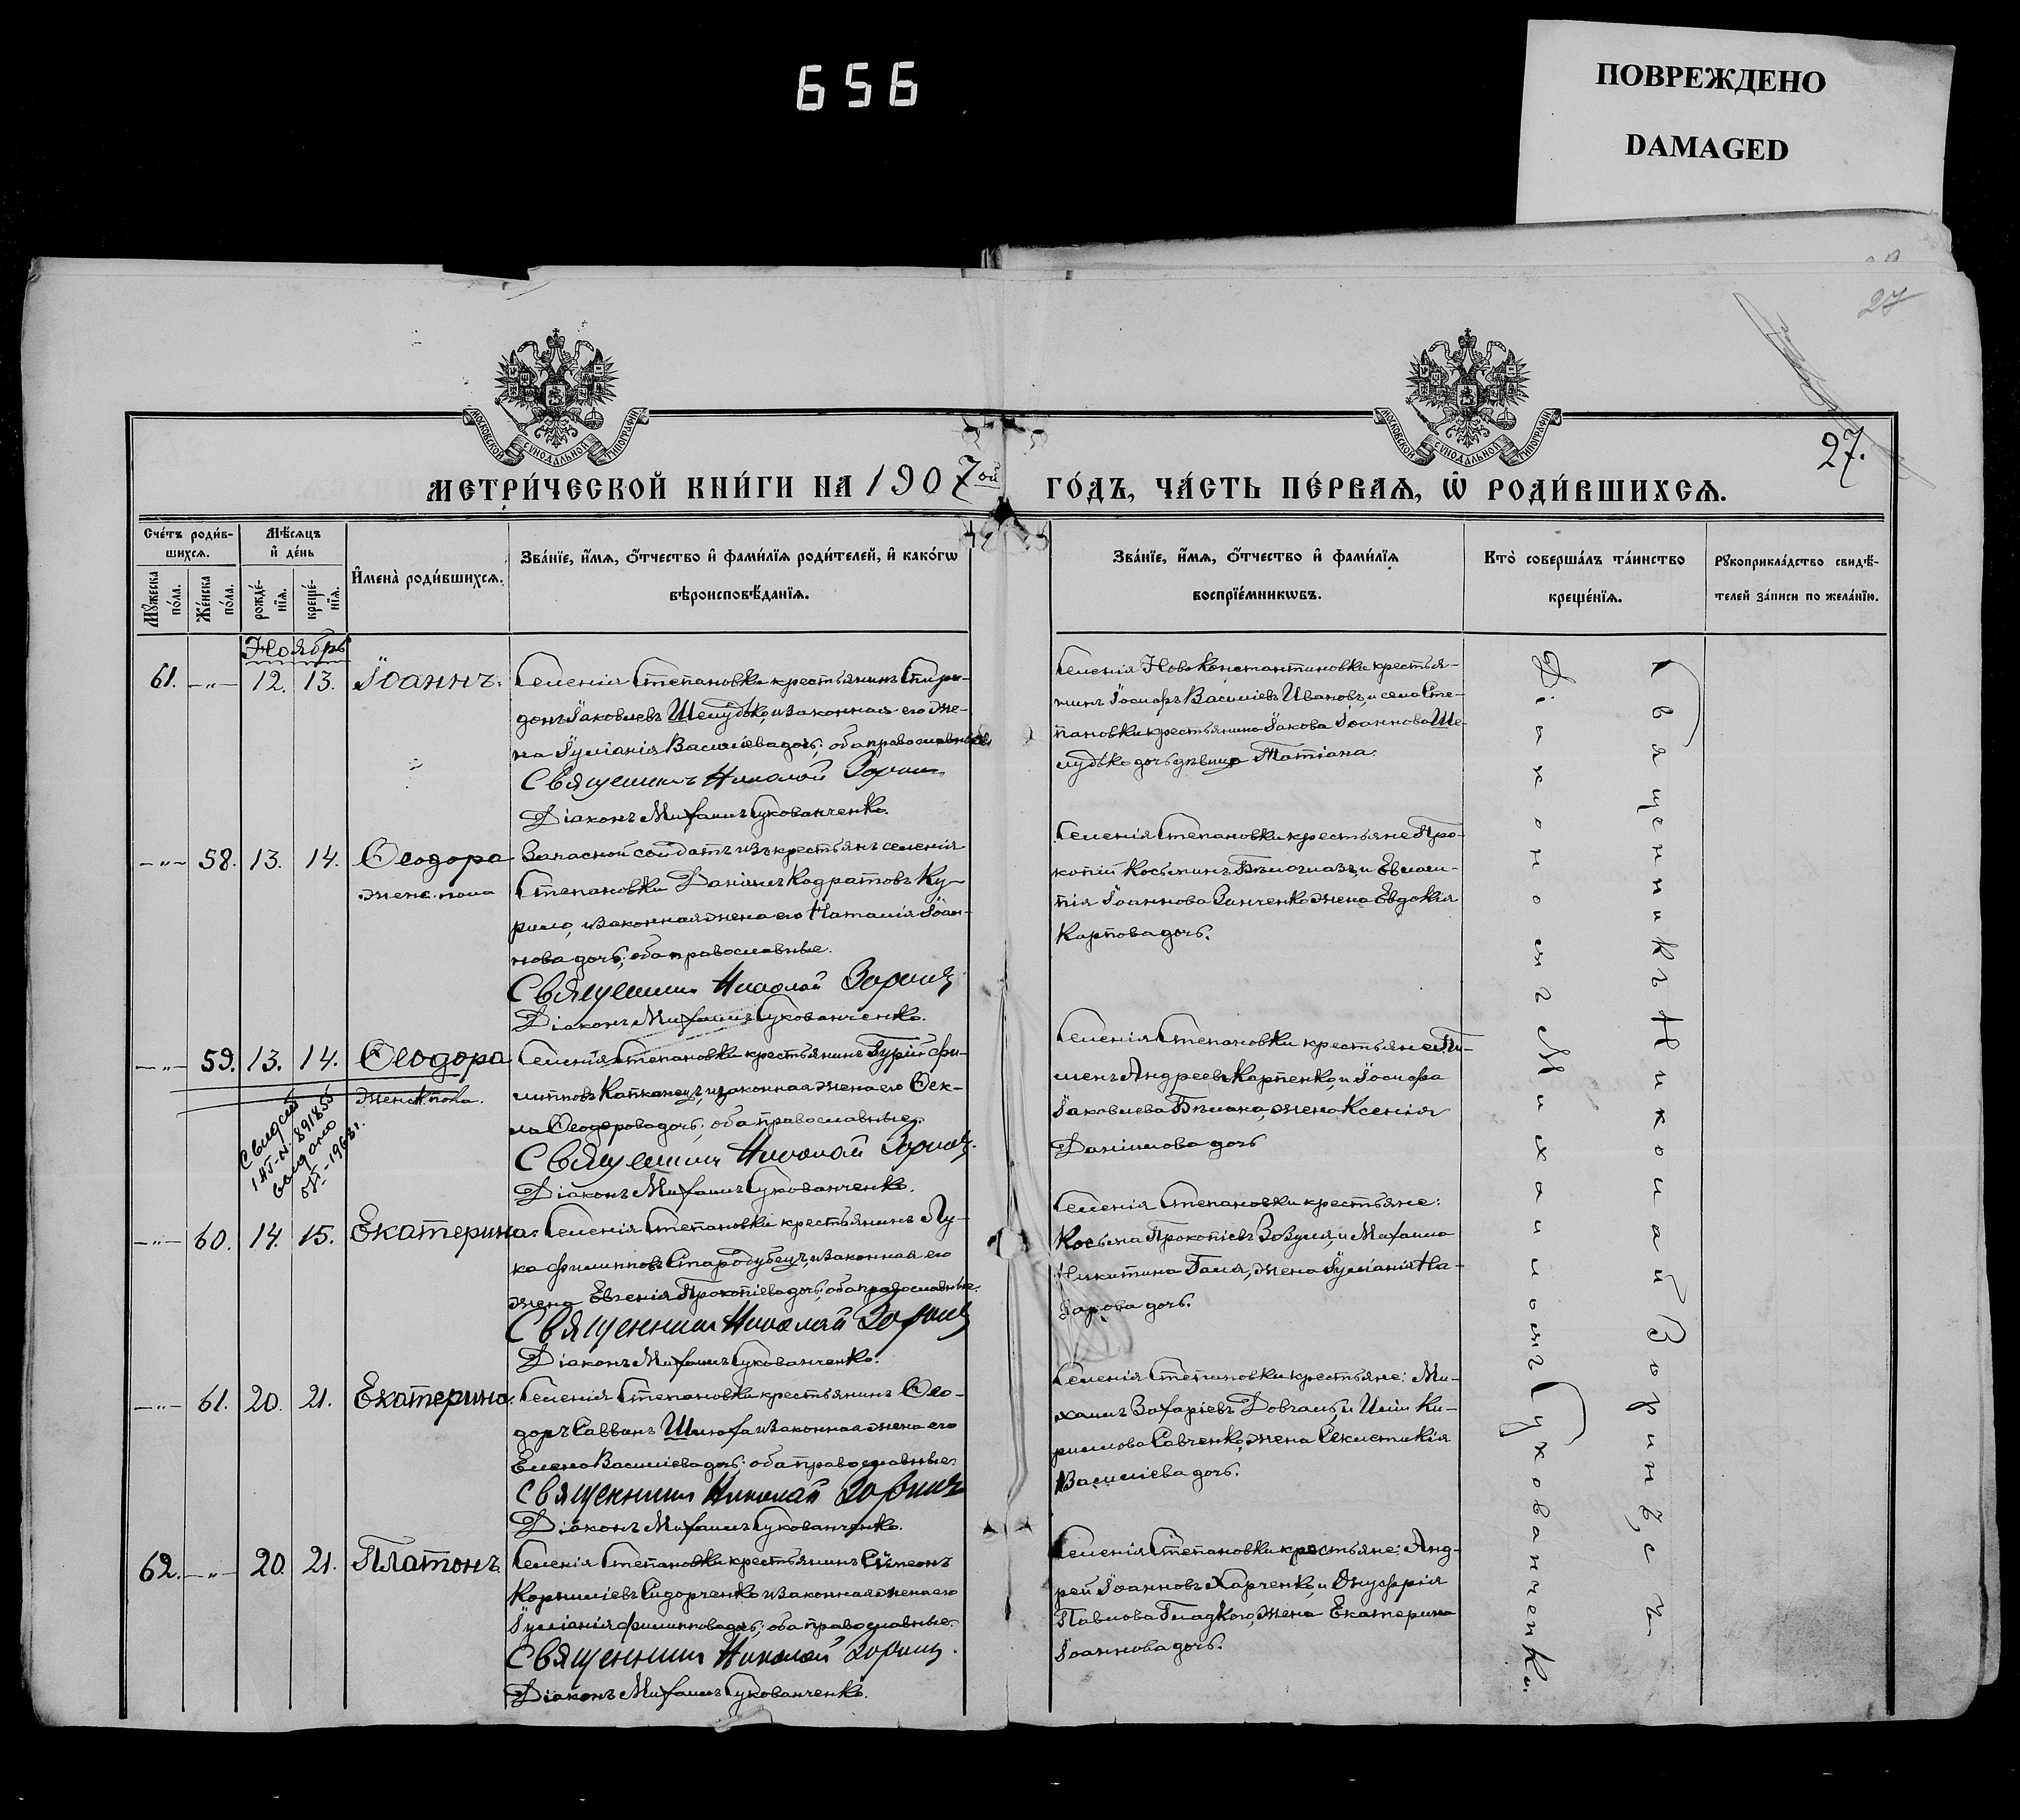 656
ПОВРЕЖДЕНО
DAMAGED
27
27.
МОСКОВСКОЙ СѴНОДАЛЬНОЙ ТИПОГРАФІИ
МОСКОВСКОЙ СѴНОДАЛЬНОЙ ТИПОГРАФІИ
МЕТРИ́ЧЕСКОЙ КНИ́ГИ НА 1907ой ГО́ДЪ, ЧА́СТЬ ПЕ́РВАѦ, Ѽ РОДИ́ВШИХСѦ.
Сче́тъ роди́в-
шихсѧ.
Мѣ́сѧцъ
и҆ де́нь
Мꙋ́жеска
по́ла.
Же́нска
по́ла.
рожде́-
нїѧ.
креще́-
нїѧ.
И҆мена̀ роди́вшихсѧ.
Зва́нїе, и҆́мѧ, ѻ҆́тчество и҆ фами́лїѧ роди́телей, и҆ како́гѡ
вѣроисповѣ́данїѧ.
Зва́нїе, и҆́мѧ, ѻ҆́тчество и҆ фами́лїѧ
воспрїе́мникѡвъ.
Кто̀ соверша́лъ та́инство
креще́нїѧ.
Рꙋкоприкла́дство свидѣ́-
телей за́писи по жела́нїю.
Ноябрь
61. -"- 12. 13. Іоаннъ.
Селенія Степановки крестьянинъ Спири-
донъ Іаковлевъ Шелудько, и законная его же-
на Іуліанія Васильева дочь; оба православные
Священникъ Николай Зоринъ
Діаконъ Михаилъ Сукованченко.
Селенія Ново Константиновки крестья-
нинъ Іосифъ Василіевъ Ивановъ, и села Сте-
пановки крестьянина Іакова Іоаннова Ше-
лудько дочь девица Татіана.
-"- 58. 13. 14. Ѳеодора
женс. пола
Запасной солдатъ изъ крестьянъ селенія
Степановки Даніилъ Кодратовъ Ку-
рило, и законная жена его Наталія Іоан-
нова дочь; оба православные.
Священникъ Николай Зоринъ
Діаконъ Михаилъ Сукованченко.
Селенія Степановки крестьяне Про-
копій Косьминъ Бѣлоглазъ, и Евлам-
пія Іоаннова Зинченко жена Евдокія
Карпова дочь.
-"- 59. 13. 14. Ѳеодора
женск. пола.
Селенія Степановки крестьянинъ Гурій Фи-
липповъ Капканецъ, и законная жена его Ѳек-
ла Ѳеодорова дочь; оба православные.
Священникъ Николай Зоринъ.
Діаконъ Михаилъ Сукованченко.
Селенія Степановки крестьяне: Пи-
менъ Андреевъ Карпенко, и Іосифа
Іаковлева Бѣлана, жена Ксенія
Даніилова дочь
891855
выдано
-"- 60. 14. 15. Екатерина.
Селенія Степановки крестьянинъ Лу-
ка Филипповъ Стародубецъ, и законная его
жена Евгенія Прокопіева дочь; оба православные.
Священникъ Николай Зоринъ
Діаконъ Михаилъ Сукованченко.
Селенія Степановки крестьяне:
Косьма Прокопіевъ Зозуля, и Михаила
Никитина жена Іуліанія На-
зарова дочь.
-"- 61. 20. 21. Екатерина.
Селенія Степановки крестьянинъ Ѳео-
доръ Саввинъ и законная жена его
Елена Василіева дочь; оба православные
Священникъ Николай Зоринъ
Діаконъ Михаилъ Сукованченко.
Селенія Степановки крестьяне: Ми-
хаилъ Захаріевъ Довгаль, и Иліи Ки-
риллова Савченко, жена
Василіева дочь.
62. -"- 20. 21. Платонъ.
Селенія Степановки крестьянинъ Сѵмеонъ
Корниліевъ Сидорченко и законная жена его
Іуліанія Филиппова дочь; оба православные.
Священникъ Николай Зоринъ.
Діаконъ Михаилъ Сукованченко.
Селенія Степановки крестьяне: Анд-
рей Іоанновъ Харченко, и Онуфрія
Павлова Гладкого, жена Екатерина
Іоаннова дочь.
Священникъ Николай Зоринъ, съ
Діакономъ Михаиломъ Сукованченко.